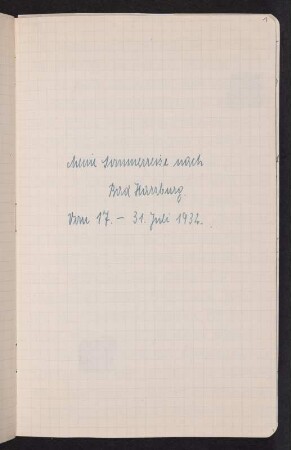 1
Meine Sommerreise nach
Bad Harzburg
Vom 17. – 31. Juli 1932.